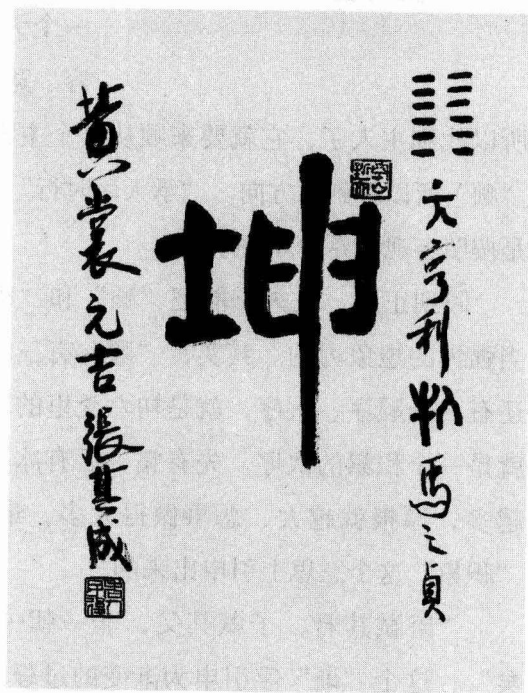 元亨利牝馬之貞
坤
黄裳元吉 張其成